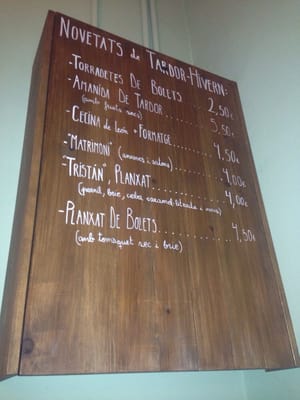 NOVETATS de TARDOR-HIVERN:
-TORRADETES DE BOLETS..... 2,50€
-AMANIDA DE TARDOR....... 5,50€
(amb fruits secs)
-CECINA de león + FORMATGE...... 4,50€
-"MATRIMONI" (anxoves i seitons)........ 4,00€
-"TRISTÁN", PLANXAT.......... 4,00€
(pernil, brie, ceba caramel·litzada i nous)
-PLANXAT DE BOLETS........... 4,50€
(amb tomaquet sec i brie)